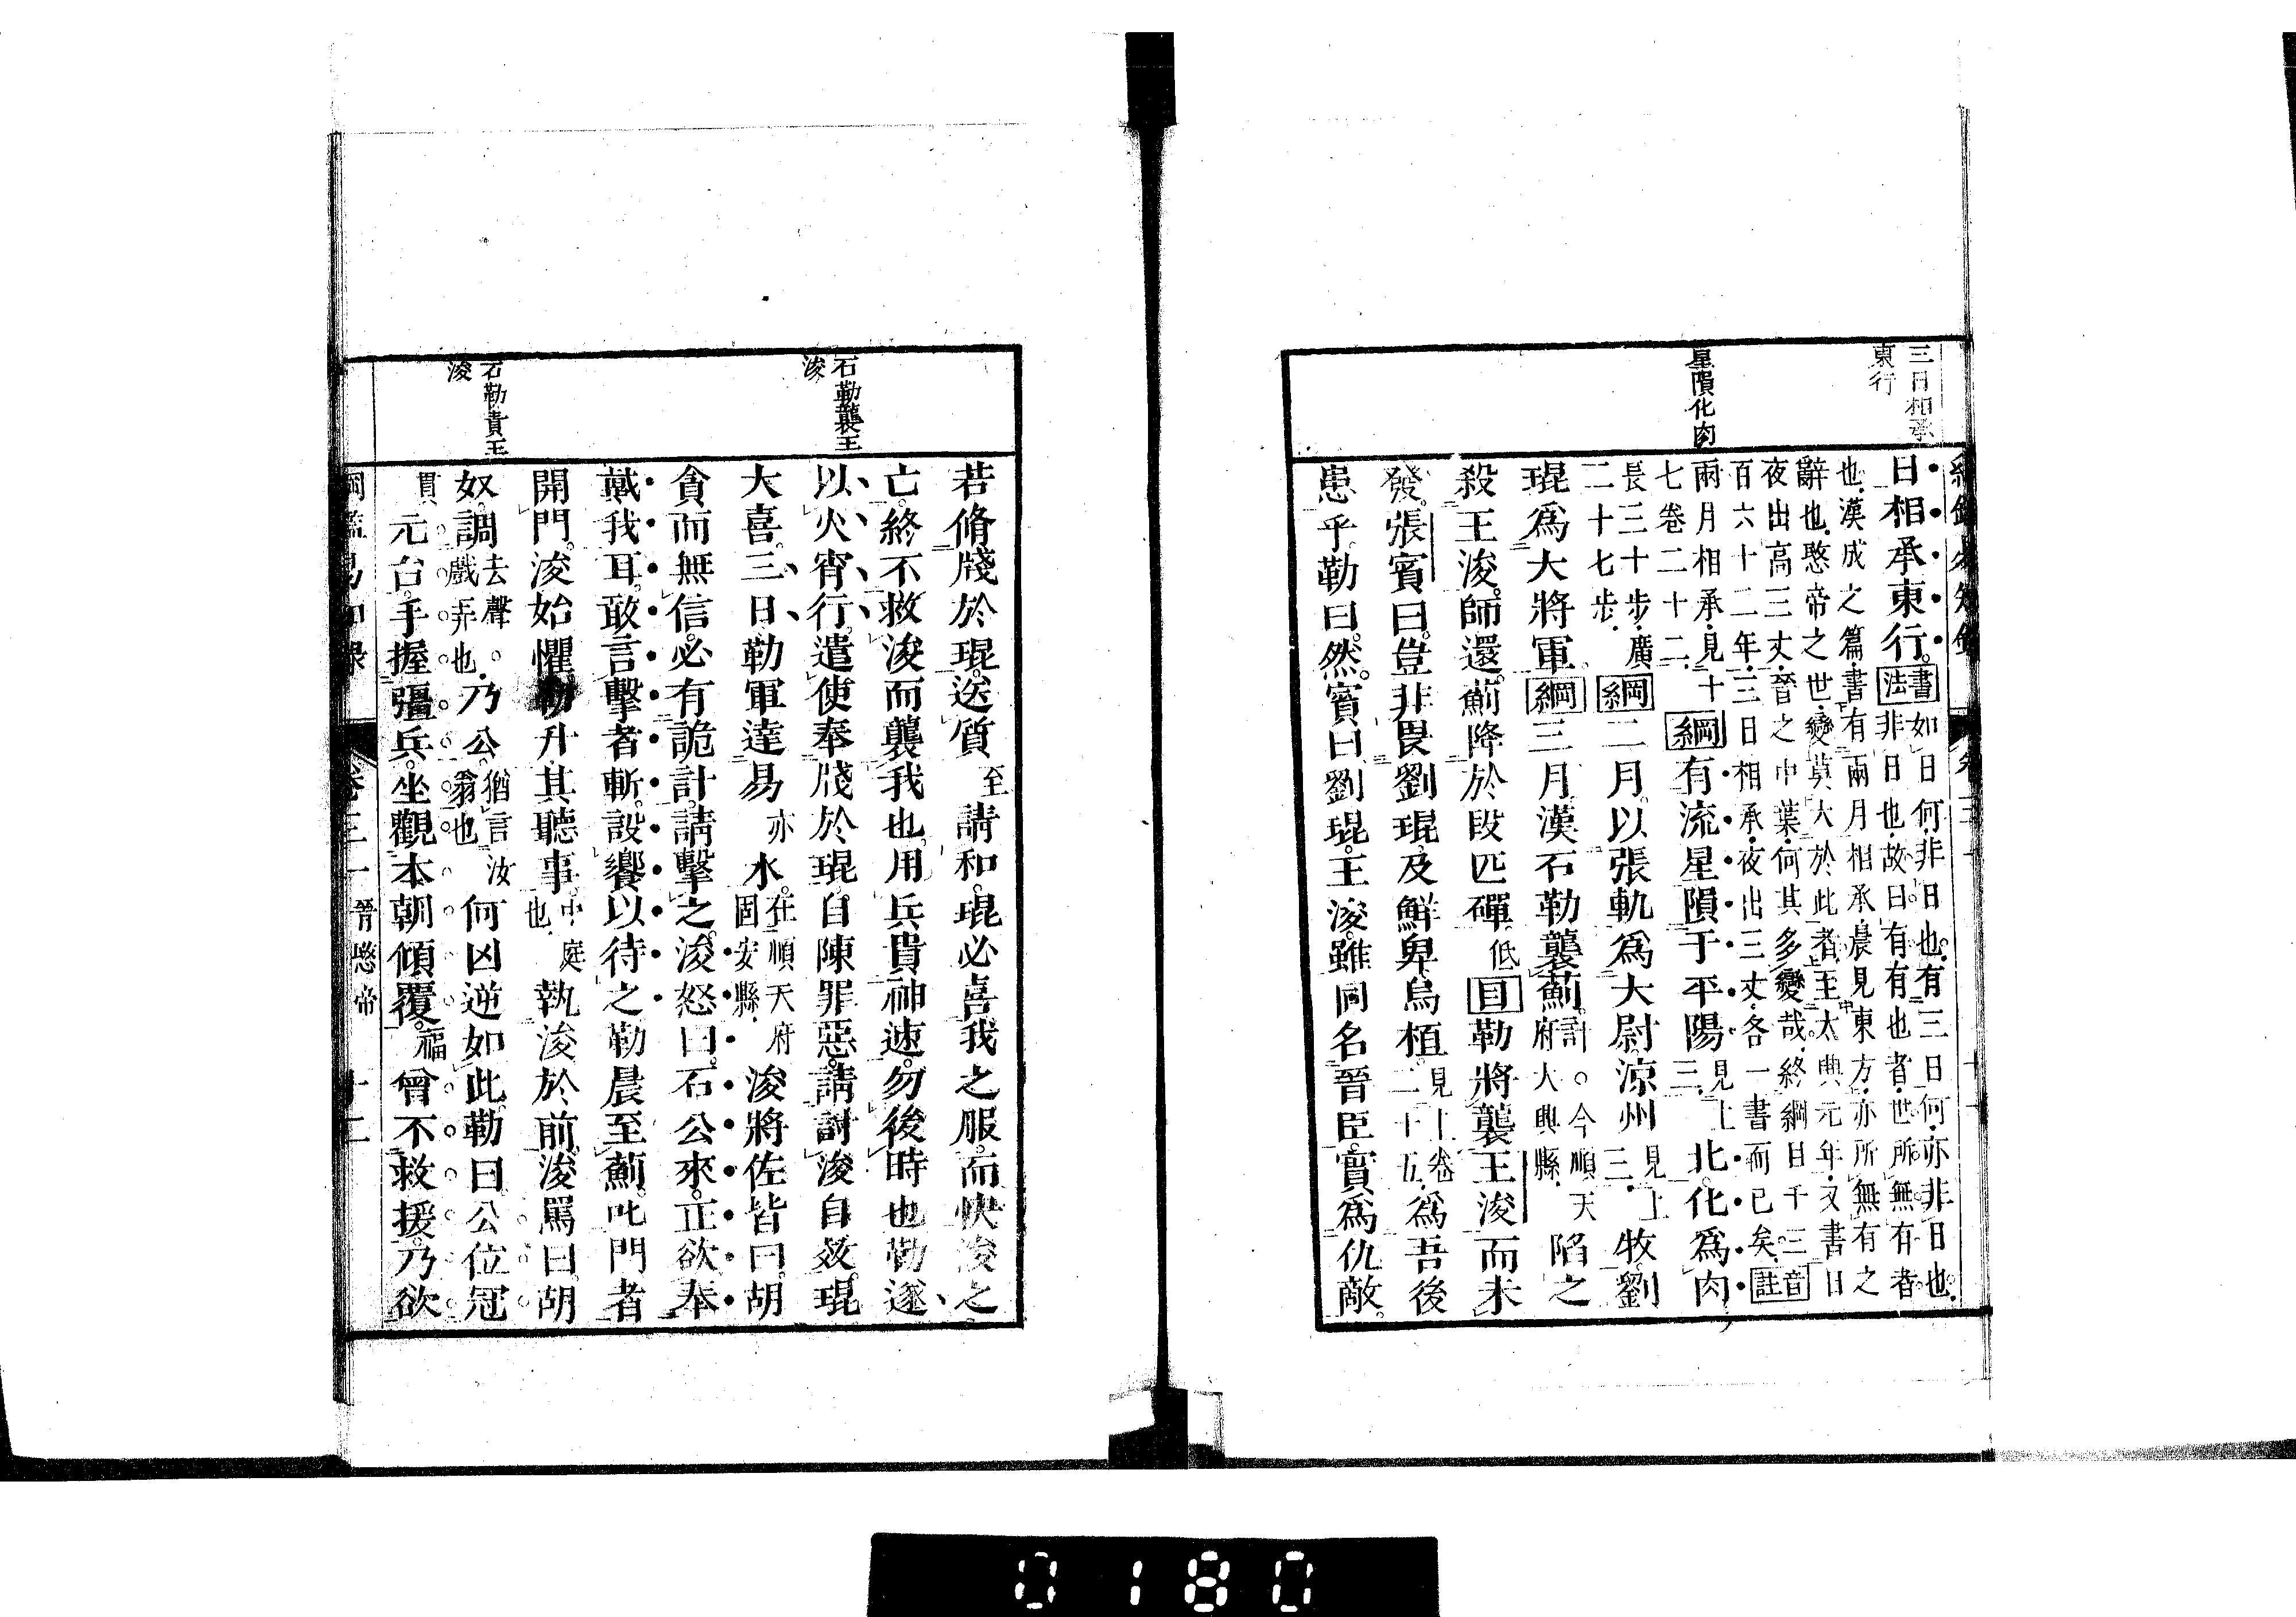 三日相承
東行
星隕化肉
日相承東行。書法如日何、非日也。有三日何、亦非日也。
非日也、故曰有。有也者、世所無有者
也、漢成之篇、書有兩月相承、晨見東方、亦所無有之
辭也、愍帝之世、變莫大於此者、至太興元年、又書日
夜出高三丈、晉之中葉、何其多變哉、終綱目千三
百六十二年、三日相承、夜出三丈、各一書而已矣、音註
兩月相承、見十
七卷二十二、綱有流星隕于平陽見上三、北。化爲肉
長三十步、廣
二十七步、綱二月。以張軌爲大尉涼州見上三、牧。劉
琨爲大將軍綱三月漢石勒襲薊。計○今順天府大興縣、陷之
殺王浚。師還。薊降於段匹磾。低目勒將襲王浚而未
發。張賓曰。豈非畏劉琨。及鮮卑烏植。見上卷二十五、爲吾後
患乎。勒曰。然。賓曰劉琨。王浚。雖同名晉臣。實爲仇敵。
石勒襲王
浚
石勒責王
浚
若脩牋於琨。送質至請和。琨必喜我之服。而快浚之。
亡。終不救浚而襲我也。用兵貴神速。勿後時也勒遂
以火宵行。遣使奉牋於琨。自陳罪惡。請討浚自效。琨
大喜。三日、勒軍達易亦水。在順天府固安縣、浚將佐皆曰。胡
貪而無信。必有詭計。請擊之。浚怒曰。石公來。正欲奉
戴我耳。敢言擊者斬。設饗以待之勒晨至薊。叱門者
開門。浚始懼勒升其聽事。中庭也、執浚於前。浚罵曰。胡
奴。調去聲。戲弄也、乃公。猶言汝翁也何凶逆如此。勒曰。公位冠
貫元台。手握彊兵。坐觀本朝傾覆。福曾不救援。乃欲
綱鑑易知錄 卷三一 晉愍帝 十二